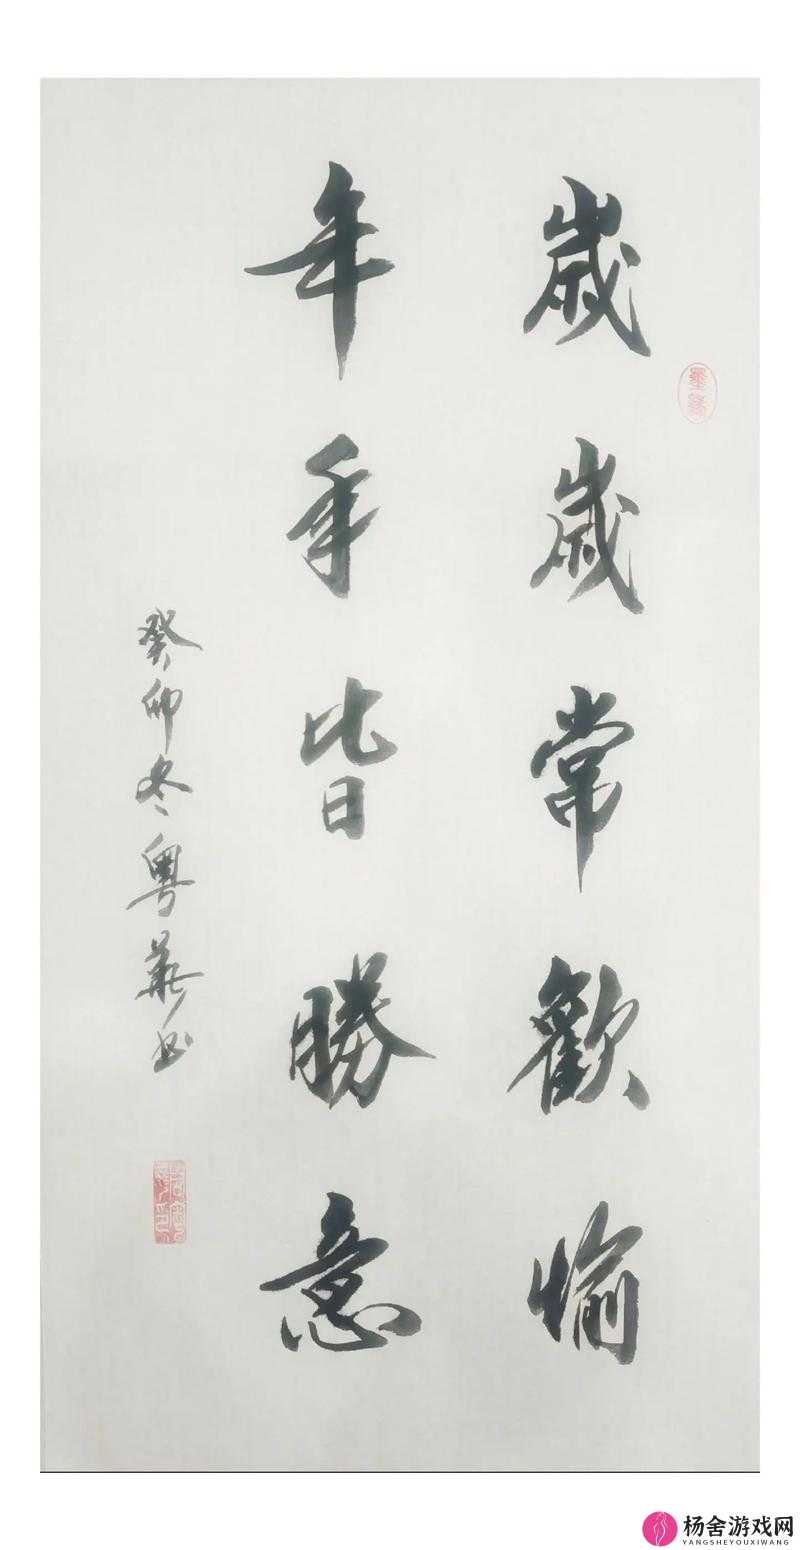 歲歲常歡愉
年年皆勝意
癸卯冬粤華书
墨緣
杨舍游戏网
YANGSHEYOUXIWANG